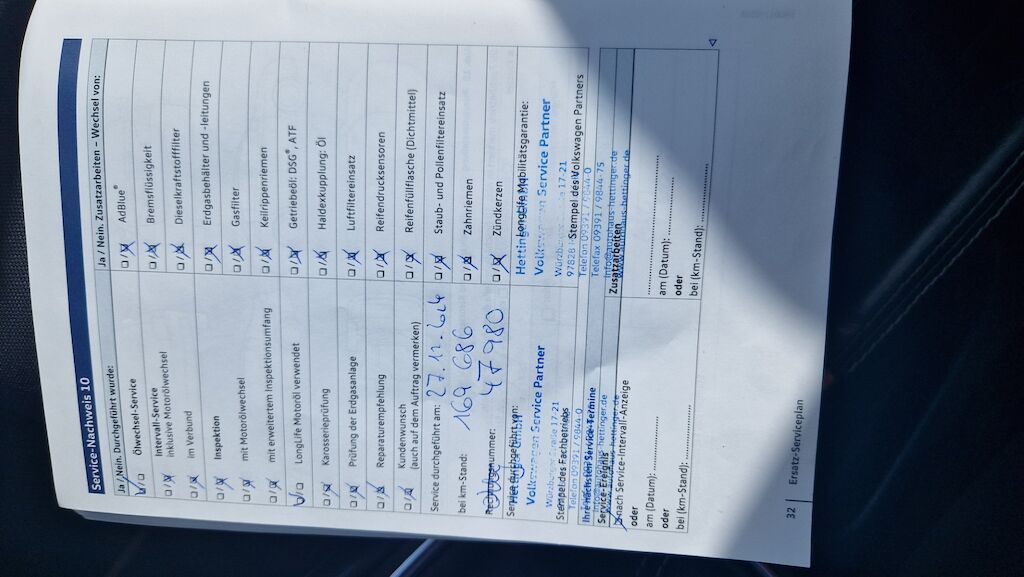 Service-Nachweis 10
Ja / Nein. Durchgeführt wurde:
Ölwechsel-Service
Intervall-Service
Inklusive Motorölwechsel
im Verbund
Inspektion
mit Motorölwechsel
mit erweitertem Inspektionsumfang
LongLife Motoröl verwendet
Karosserieprüfung
Prüfung der Erdgasanlage
Reparaturempfehlung
Kundenwunsch
(auch auf dem Auftrag vermerken)
Service durchgeführt am: 27.11.
bei km-Stand: 169 686
Rechnungsnummer: 47980
Service durchgeführt von:
GmbH
Volkswagen Service Partner
Würzburger Straße 17-21
Stempel des Fachbetriebs
Telefon 09391 / 9844-0
Ihre nächsten Service-Termine
Service-Ereignis
nach Service-Intervall-Anzeige
oder
am (Datum):
oder
bei (km-Stand):
Ja / Nein. Zusatzarbeiten – Wechsel von:
AdBlue®
Bremsflüssigkeit
Dieselkraftstofffilter
Erdgasbehälter und -leitungen
Gasfilter
Keilrippenriemen
Getriebeöl: DSG®, ATF
Haldexkupplung: Öl
Luftfiltereinsatz
Reifendrucksensoren
Reifenfüllflasche (Dichtmittel)
Staub- und Pollenfiltereinsatz
Zahnriemen
Zündkerzen
LongLife Mobilitätsgarantie:
Volkswagen Service Partner
Würzburger Straße 17-21
97828
Stempel des Volkswagen Partners
Telefon 09391 / 9844-0
Telefax 09391 / 9844-75
info@autohaus-hettinger.de
Zusatzarbeiten
www.autohaus-hettinger.de
am (Datum):
oder
bei (km-Stand):
32
Ersatz-Serviceplan